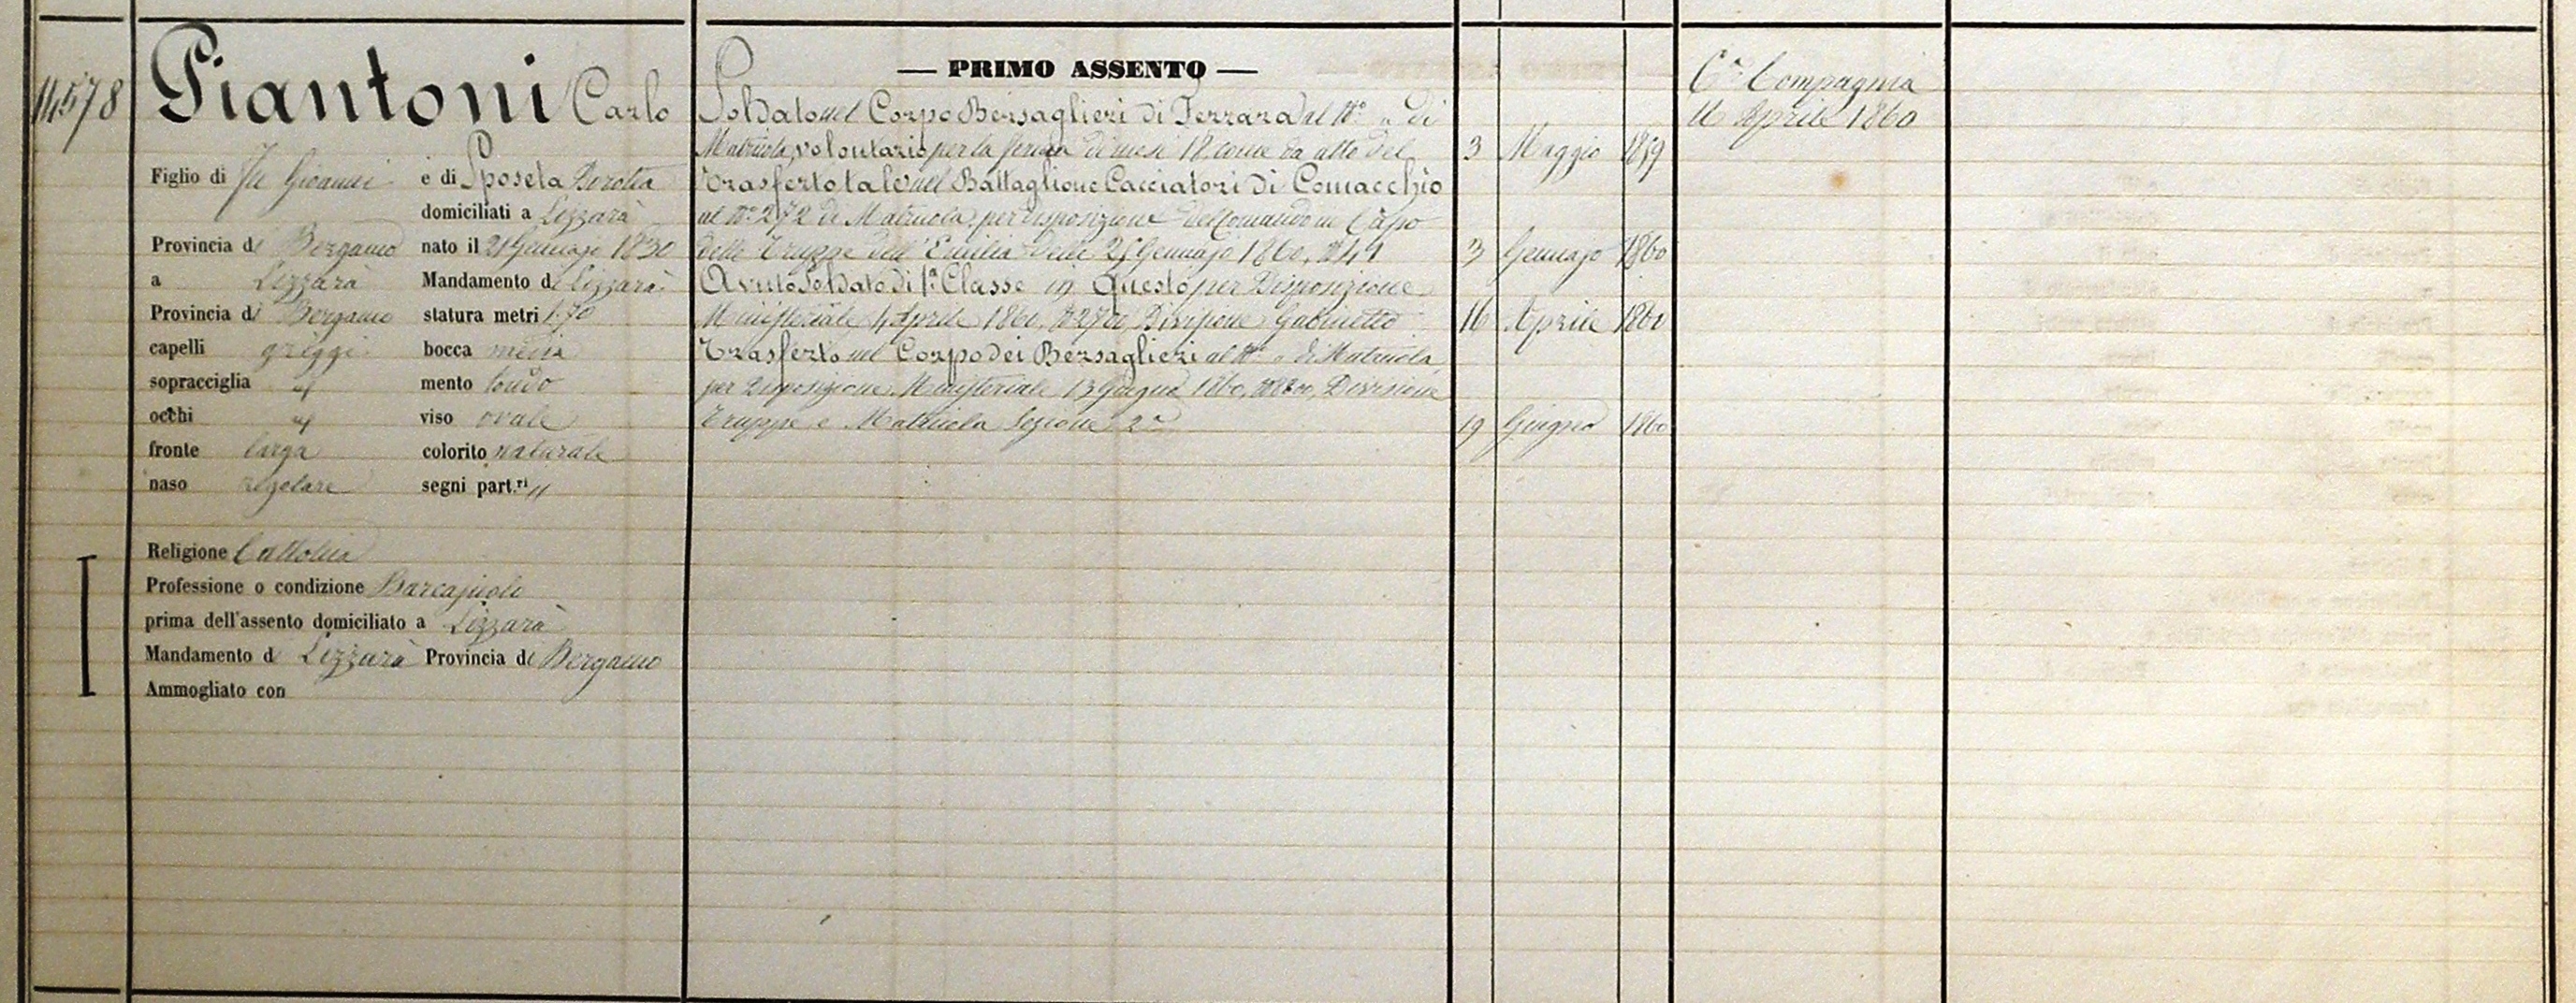 14578
Piantoni Carlo
Figlio di fu Gioanni e di Sposeta Berotta
domiciliati a Lizzarà
Provincia di Bergamo nato il 21 Gennajo 1830
a Lizzarà Mandamento di Lizzarà
Provincia di Bergamo statura metri 1.70
capelli griggi bocca media
sopracciglia id mento tondo
occhi id viso ovale
fronte larga colorito naturale
naso regolare segni part.ri "
Religione Cattolica
Professione o condizione Barcajuolo
prima dell'assento domiciliato a Lizzarà
Mandamento di Lizzarà Provincia di Bergamo
Ammogliato con
— PRIMO ASSENTO —
Soldato nel Corpo Bersaglieri di Ferrara al N° " di
Matricola, volontario per la ferma di mesi 18 come da atto del 3 Maggio 1859
Trasferto tale nel Battaglione Cacciatori di Comacchio
al N° 272 di Matricola, per disposizione del Comando in Capo
delle Truppe dell'Emilia delle 25 Gennajo 1860, N° 41 3 Gennajo 1860
Avuto Soldato di 1ª Classe in questo per Disposizione
Ministeriale 4 Aprile 1860, N° 2700, Divisione Gabinetto 16 Aprile 1860
Trasferto nel Corpo dei Bersaglieri al N° " di Matricola,
per Disposizione Ministeriale 13 Giugno 1860, Divisione
Truppe e Matricola Sezione 2ª 19 Giugno 1860
6ª Compagnia
16 Aprile 1860